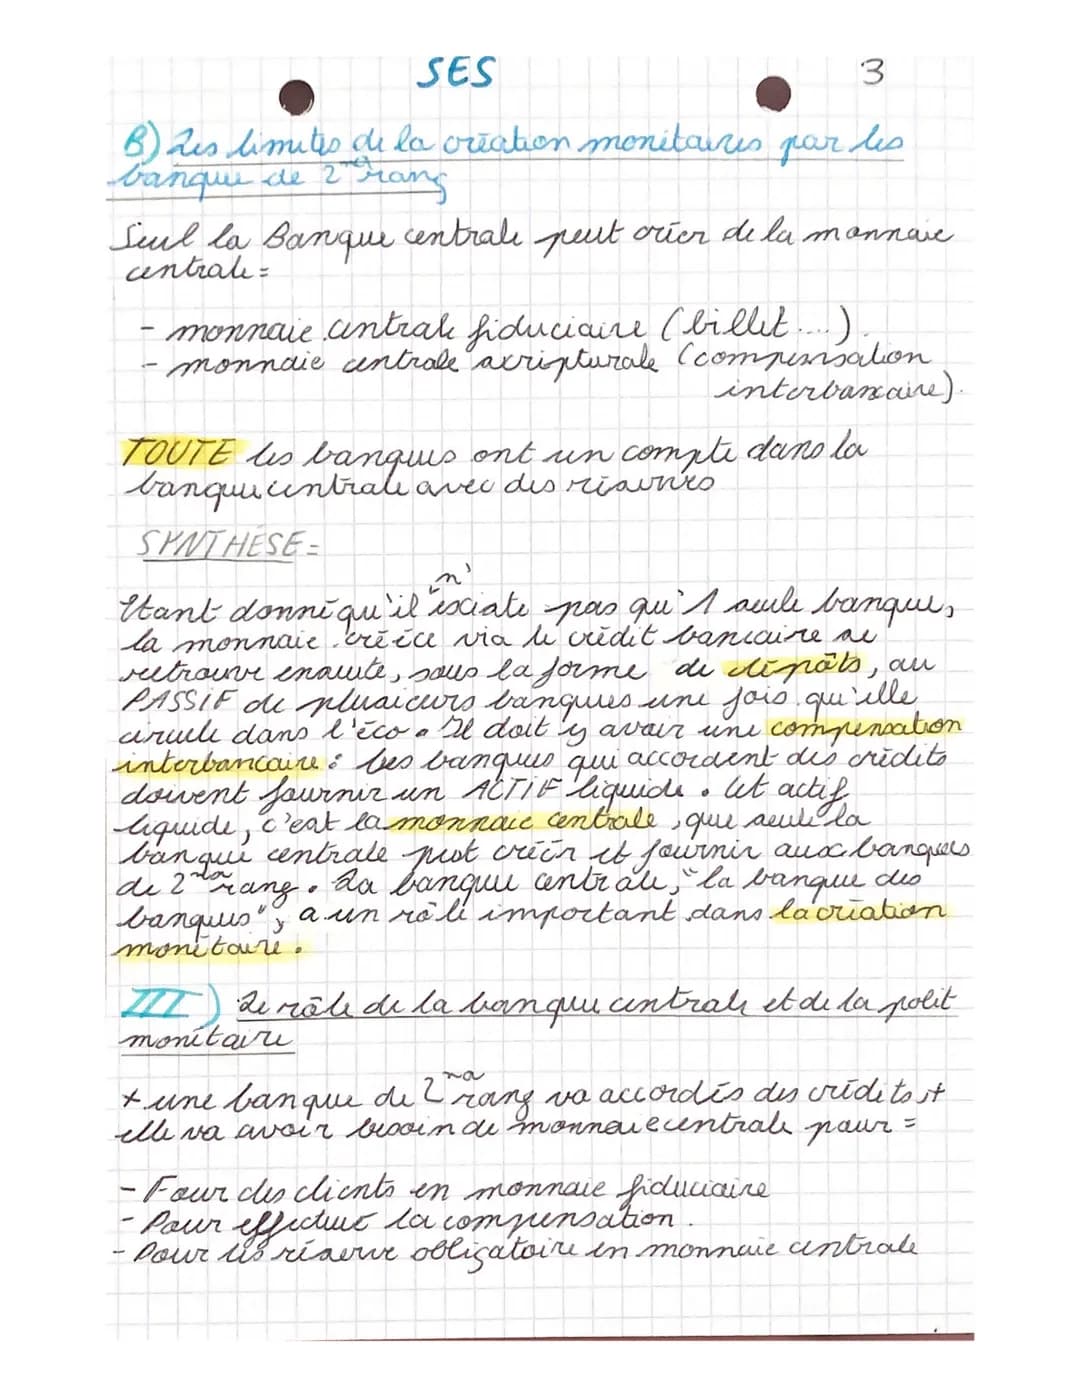 SES
3
B) Les limites de la création monétaires par les
banque de 2nd rang
Seul la Banque centrale peut créer de la monnaie
centrale =
- monnaie centrale fiduciaire (billet....).
- monnaie centrale scripturale (compensation
interbancaire).
TOUTE les banques ont un compte dans la
banque centrale avec des réserves
SYNTHÈSE =
n'
Etant donné qu'il existe pas qu'1 seule banque,
la monnaie créée via le crédit bancaire se
retrouve ensuite, sous la forme de dépôts, au
PASSIF de plusieurs banques une fois qu'elle
circule dans l'éco. Il doit y avoir une compensation
interbancaire : les banques qui accordent des crédits
doivent fournir un ACTIF liquide. Cet actif
liquide, c'est la monnaie centrale, que seule la
banque centrale peut créer et fournir aux banques
de 2nd rang. La banque centrale, "la banque des
banques", a un rôle important dans la création
monétaire.
III) Le rôle de la banque centrale et de la polit
monétaire
+ une banque de 2nd rang va accordés des crédits +
elle va avoir besoin de monnaie centrale pour =
- Four des clients en monnaie fiduciaire
- Pour effectué la compensation.
- Pour les réserve obligatoire en monnaie centrale